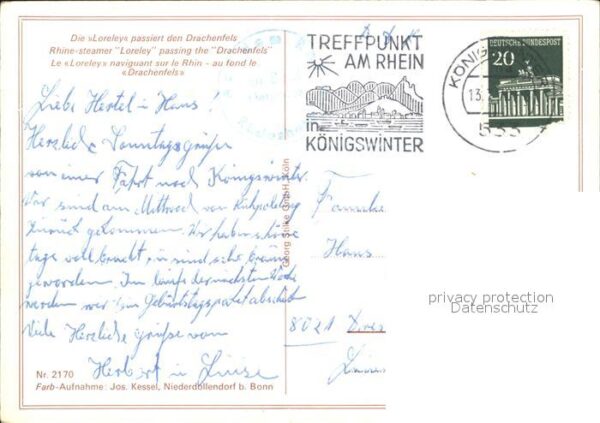 Die »Loreley« passiert den Drachenfels
Rhine-steamer "Loreley" passing the "Drachenfels"
Le »Loreley« naviguant sur le Rhin - au fond le
«Drachenfels»
TREFFPUNKT
AM RHEIN
in
KÖNIGSWINTER
KÖNIG
13.
533
DEUTSCHE BUNDESPOST
20
Liebe Hertel u Hans!
Herzliche Sonntagsgrüße
von einer Fahrt nach Königswinter.
Wir sind am Mittwoch von Ruhpolding
zurück gekommen. Wir haben schöne
tage vollbracht, u sind sehr braun
geworden. Im laufe der nächsten Woche
werden wir ein Geburtstagspaket abschick
Viele Herzliche grüße von
Herbert u Luise
Familie
Hans
8021 Dres
Georg Stilke GmbH, Köln
Nr. 2170
Farb-Aufnahme: Jos. Kessel, Niederdollendorf b. Bonn
privacy protection
Datenschutz